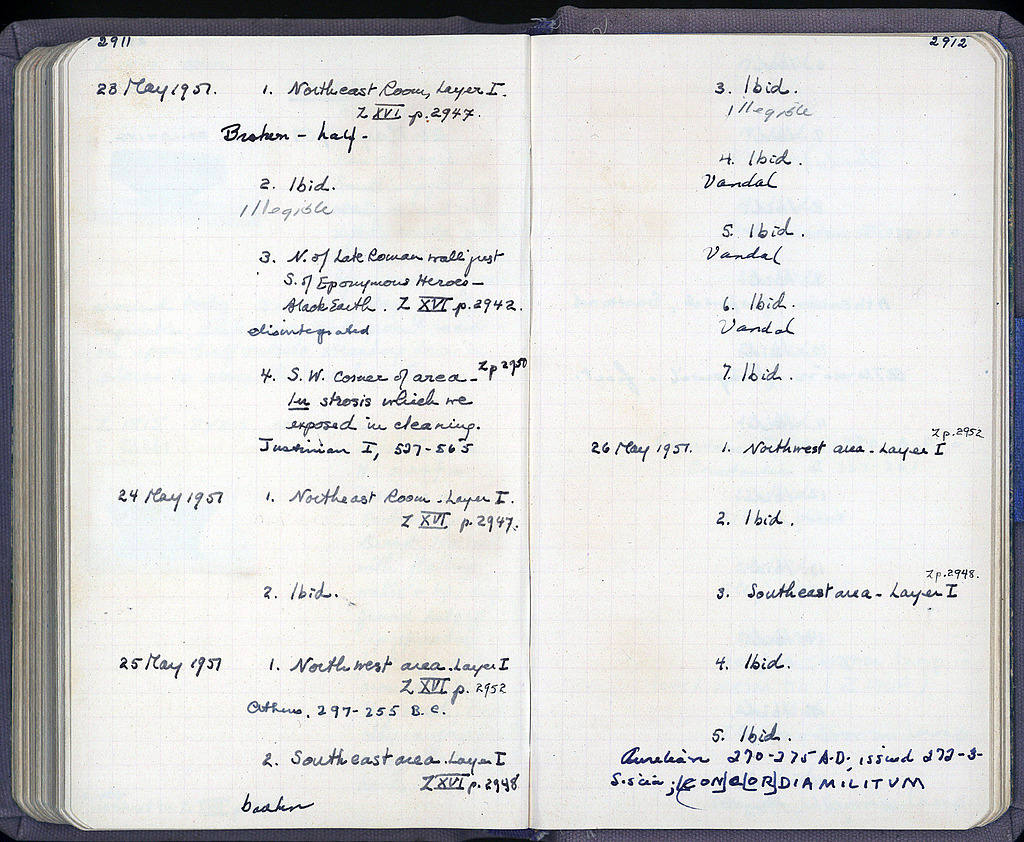 2911
23 May 1951. 1. Northeast Room, Layer I.
Z XVI p. 2947.
Broken - half -
2. Ibid.
Illegible
3. N. of Late Roman wall just
S. of Eponymous Heroes -
Black Earth. Z XVI p. 2942.
disintegrated
4. S.W. corner of area - Z p 2950
In strosis which we
exposed in cleaning.
Justinian I, 527-565
24 May 1951 1. Northeast Room - Layer I.
Z XVI p. 2947.
2. Ibid.
25 May 1951 1. Northwest area. Layer I
Z XVI p. 2952
Athens, 297-255 B.C.
2. Southeast area. Layer I
Z XVI p. 2948
broken
2912
3. Ibid.
Illegible
4. Ibid.
Vandal
5. Ibid.
Vandal
6. Ibid.
Vandal
7. Ibid.
Z p. 2952
26 May 1951. 1. Northwest area - Layer I
2. Ibid.
Z p. 2948.
3. Southeast area - Layer I
4. Ibid.
5. Ibid.
Aurelian 270-275 A.D., issued 272-3-
Siscia; [CON]C[OR]DIA MILITVM